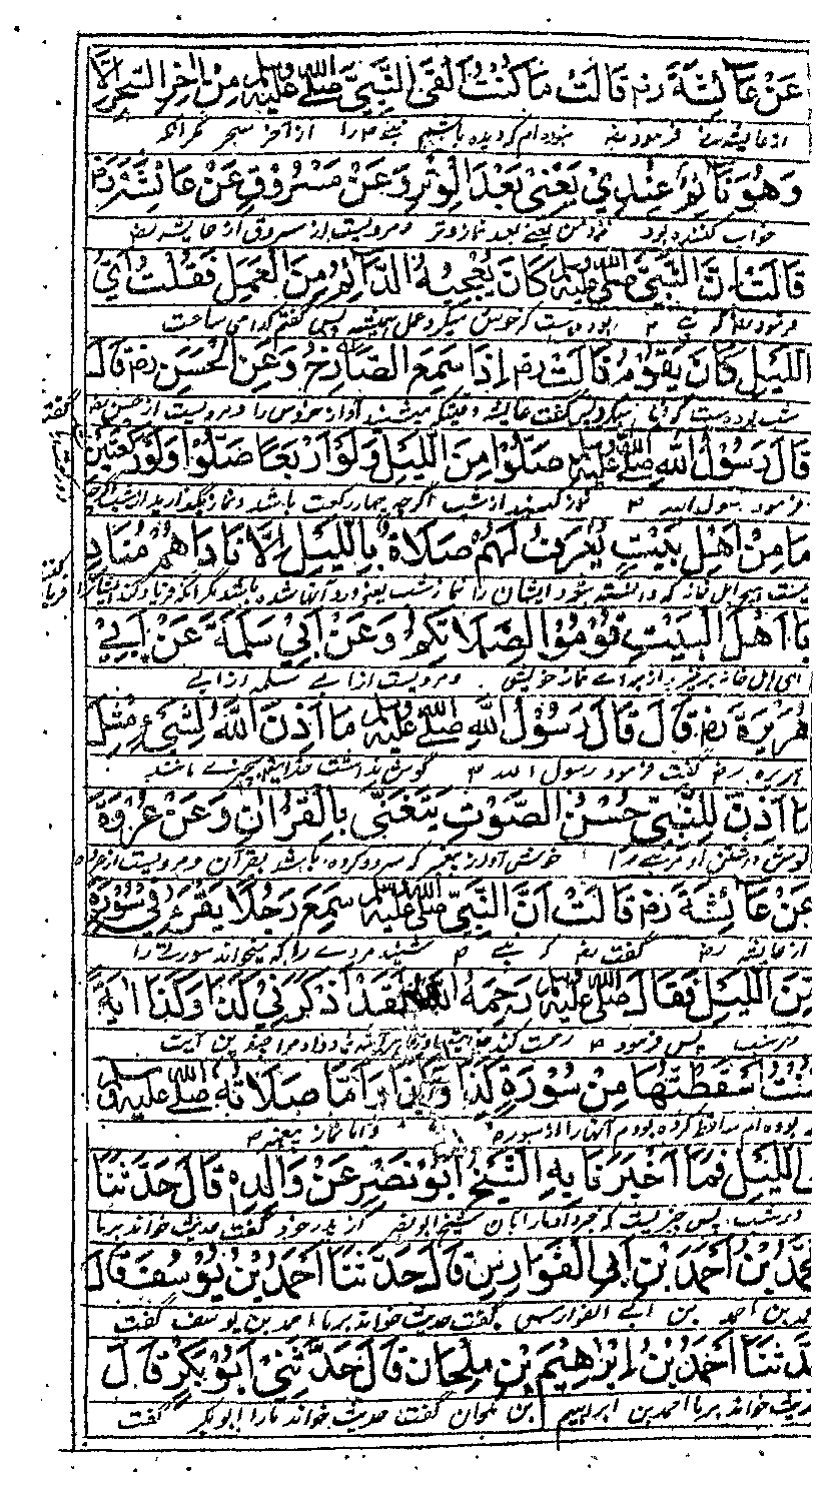 عَنْ عَائِشَةَ رضہ قَالَتْ مَا كُنْتُ اَلْقَى النَّبِيَّ صلى الله عليه وسلم مِنْ اٰخِرِ السَّحَرِ اِلَّا
از عایشه رضہ فرمود رضہ نبودم که دیده باشم نبی ص را از آخر سحر مگر آنکه
وَهُوَ نَائِمٌ عِنْدِيْ يَعْنِيْ بَعْدَ الْوِتْرِ وَعَنْ مَسْرُوْقٍ عَنْ عَائِشَةَ رضہ
خواب کننده بود نزد من یعنی بعد نماز وتر و مرویست از مسروق از عایشه رضہ
قَالَتْ اِنَّ النَّبِيَّ صلى الله عليه وسلم كَانَ يُعْجِبُهُ الدَّائِمُ مِنَ الْعَمَلِ فَقُلْتُ اَيَّ
فرمود که نبی ص بود که خوش میکرد عمل همیشه پس گفتم کدامی ساعت
اللَّيْلِ كَانَ يَقُوْمُ قَالَتْ رضہ اِذَا سَمِعَ الصَّارِخَ وَعَنِ الْحَسَنِ رضہ قَالَ
شب گفت عایشه وقتیکه میشنید آواز خروس را و مرویست از حسن رضہ
قَالَ رَسُوْلُ اللهِ صلى الله عليه وسلم صَلُّوْا مِنَ اللَّيْلِ وَلَوْ اَرْبَعًا صَلُّوْا وَلَوْ رَكْعَتَيْنِ
فرمود رسول الله ص نماز کنید از شب اگرچه چهار رکعت باشد و نماز بگذارید از شب اگرچه
مَا مِنْ اَهْلِ بَيْتٍ يُعْرَفُ لَهُمْ صَلَاةٌ بِاللَّيْلِ اِلَّا نَادَاهُمْ مُنَادٍ
نیست هیچ اهل خانه که دانسته شود ایشان را نماز شب یعنی در آنها شده باشد مگر آنکه فریاد کند ایشان را
يَا اَهْلَ الْبَيْتِ قُوْمُوْا لِصَلَاتِكُمْ وَعَنْ اَبِيْ سَلَمَةَ عَنْ اَبِيْ
ای اهل خانه برخیزید از برای نماز خویش و مرویست از ابی سلمه از ابی
هُرَيْرَةَ رضہ قَالَ قَالَ رَسُوْلُ اللهِ صلى الله عليه وسلم مَا اَذِنَ اللهُ لِشَيْءٍ مِثْلَ
هریره رضہ گفت فرمود رسول الله ص گوش نداشت خدایتعالی بچیزی مانند
مَا اَذِنَ لِلنَّبِيِّ حُسْنَ الصَّوْتِ يَتَغَنَّى بِالْقُرْاٰنِ وَعَنْ عُرْوَةَ
گوش داشتن او مر نبی را خوش آواز پیغمبر که سرود کرده باشد بقرآن و مرویست از عروه
عَنْ عَائِشَةَ رضہ قَالَتْ اَنَّ النَّبِيَّ صلى الله عليه وسلم سَمِعَ رَجُلًا يَقْرَءُ فِيْ سُوْرَةٍ
از عایشه رضہ گفت رضہ که نبی ص شنید مردی را که میخواند سورتی را
مِنَ اللَّيْلِ فَقَالَ صلى الله عليه وسلم رَحِمَهُ اللهُ لَقَدْ اَذْكَرَنِيْ كَذَا وَكَذَا اٰيَةً
در شب پس فرمود ص رحمت کند هر آئینه یاد داد مرا چندین آیت
كُنْتُ اَسْقَطْتُهَا مِنْ سُوْرَةِ كَذَا وَكَذَا وَاَمَّا صَلَاتُهُ صلى الله عليه وسلم
بوده ام ساقط کرده بودم آنها را از سوره و اما نماز پیغمبر ص
بِاللَّيْلِ فَمَا اَخْبَرَنَا بِهِ الشَّيْخُ اَبُوْ نَصْرٍ عَنْ وَالِدِهِ قَالَ حَدَّثَنَا
در شب پس چیزیست که خبر داد ما را بآن شیخ ابو نصر از پدر خود گفت حدیث خواند بر ما
مُحَمَّدُ بْنُ اَحْمَدَ بْنِ اَبِي الْفَوَارِسِ قَالَ حَدَّثَنَا اَحْمَدُ بْنُ يُوْسُفَ قَالَ
محمد بن احمد بن ابی الفوارس گفت حدیث خواند بر ما احمد بن یوسف گفت
حَدَّثَنَا اَحْمَدُ بْنُ اِبْرَاهِيْمَ بْنِ مِلْحَانَ قَالَ حَدَّثَنِيْ اَبُوْ بَكْرٍ قَالَ
حدیث خواند بر ما احمد بن ابراهیم بن ملحان گفت حدیث خواند ما را ابو بکر گفت